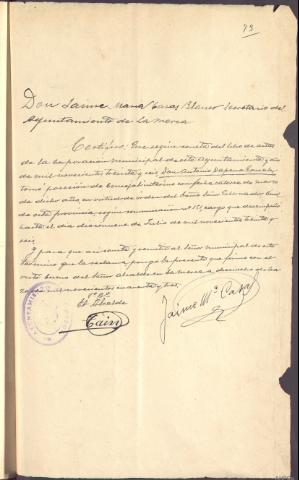 79
Don Jaime María Casas Blanco Secretario del
Ayuntamiento de La Merca
Certifico: Que según resulta del libro de actas
de la Corporación municipal de este Ayuntamiento, año
de mil novecientos treinta y seis Don Antonio
tomó posesión de Concejal interino con fecha catorce de marzo
de dicho año, en virtud de orden del Excmo Señor Gobernador Civil
de esta provincia, según comunicación nº cargo que desempeñó
hasta el día de Julio de mil novecientos treinta y
seis
Y para que así conste y remitir al Señor municipal de este
término que lo reclama, pongo la presente que firmo con el
visto bueno del Señor Alcalde en La Merca a dieciocho de
mil novecientos cuarenta y tres.
Vº Bº
El Alcalde
Jaime Mª Casas
AYUNTAMIENTO